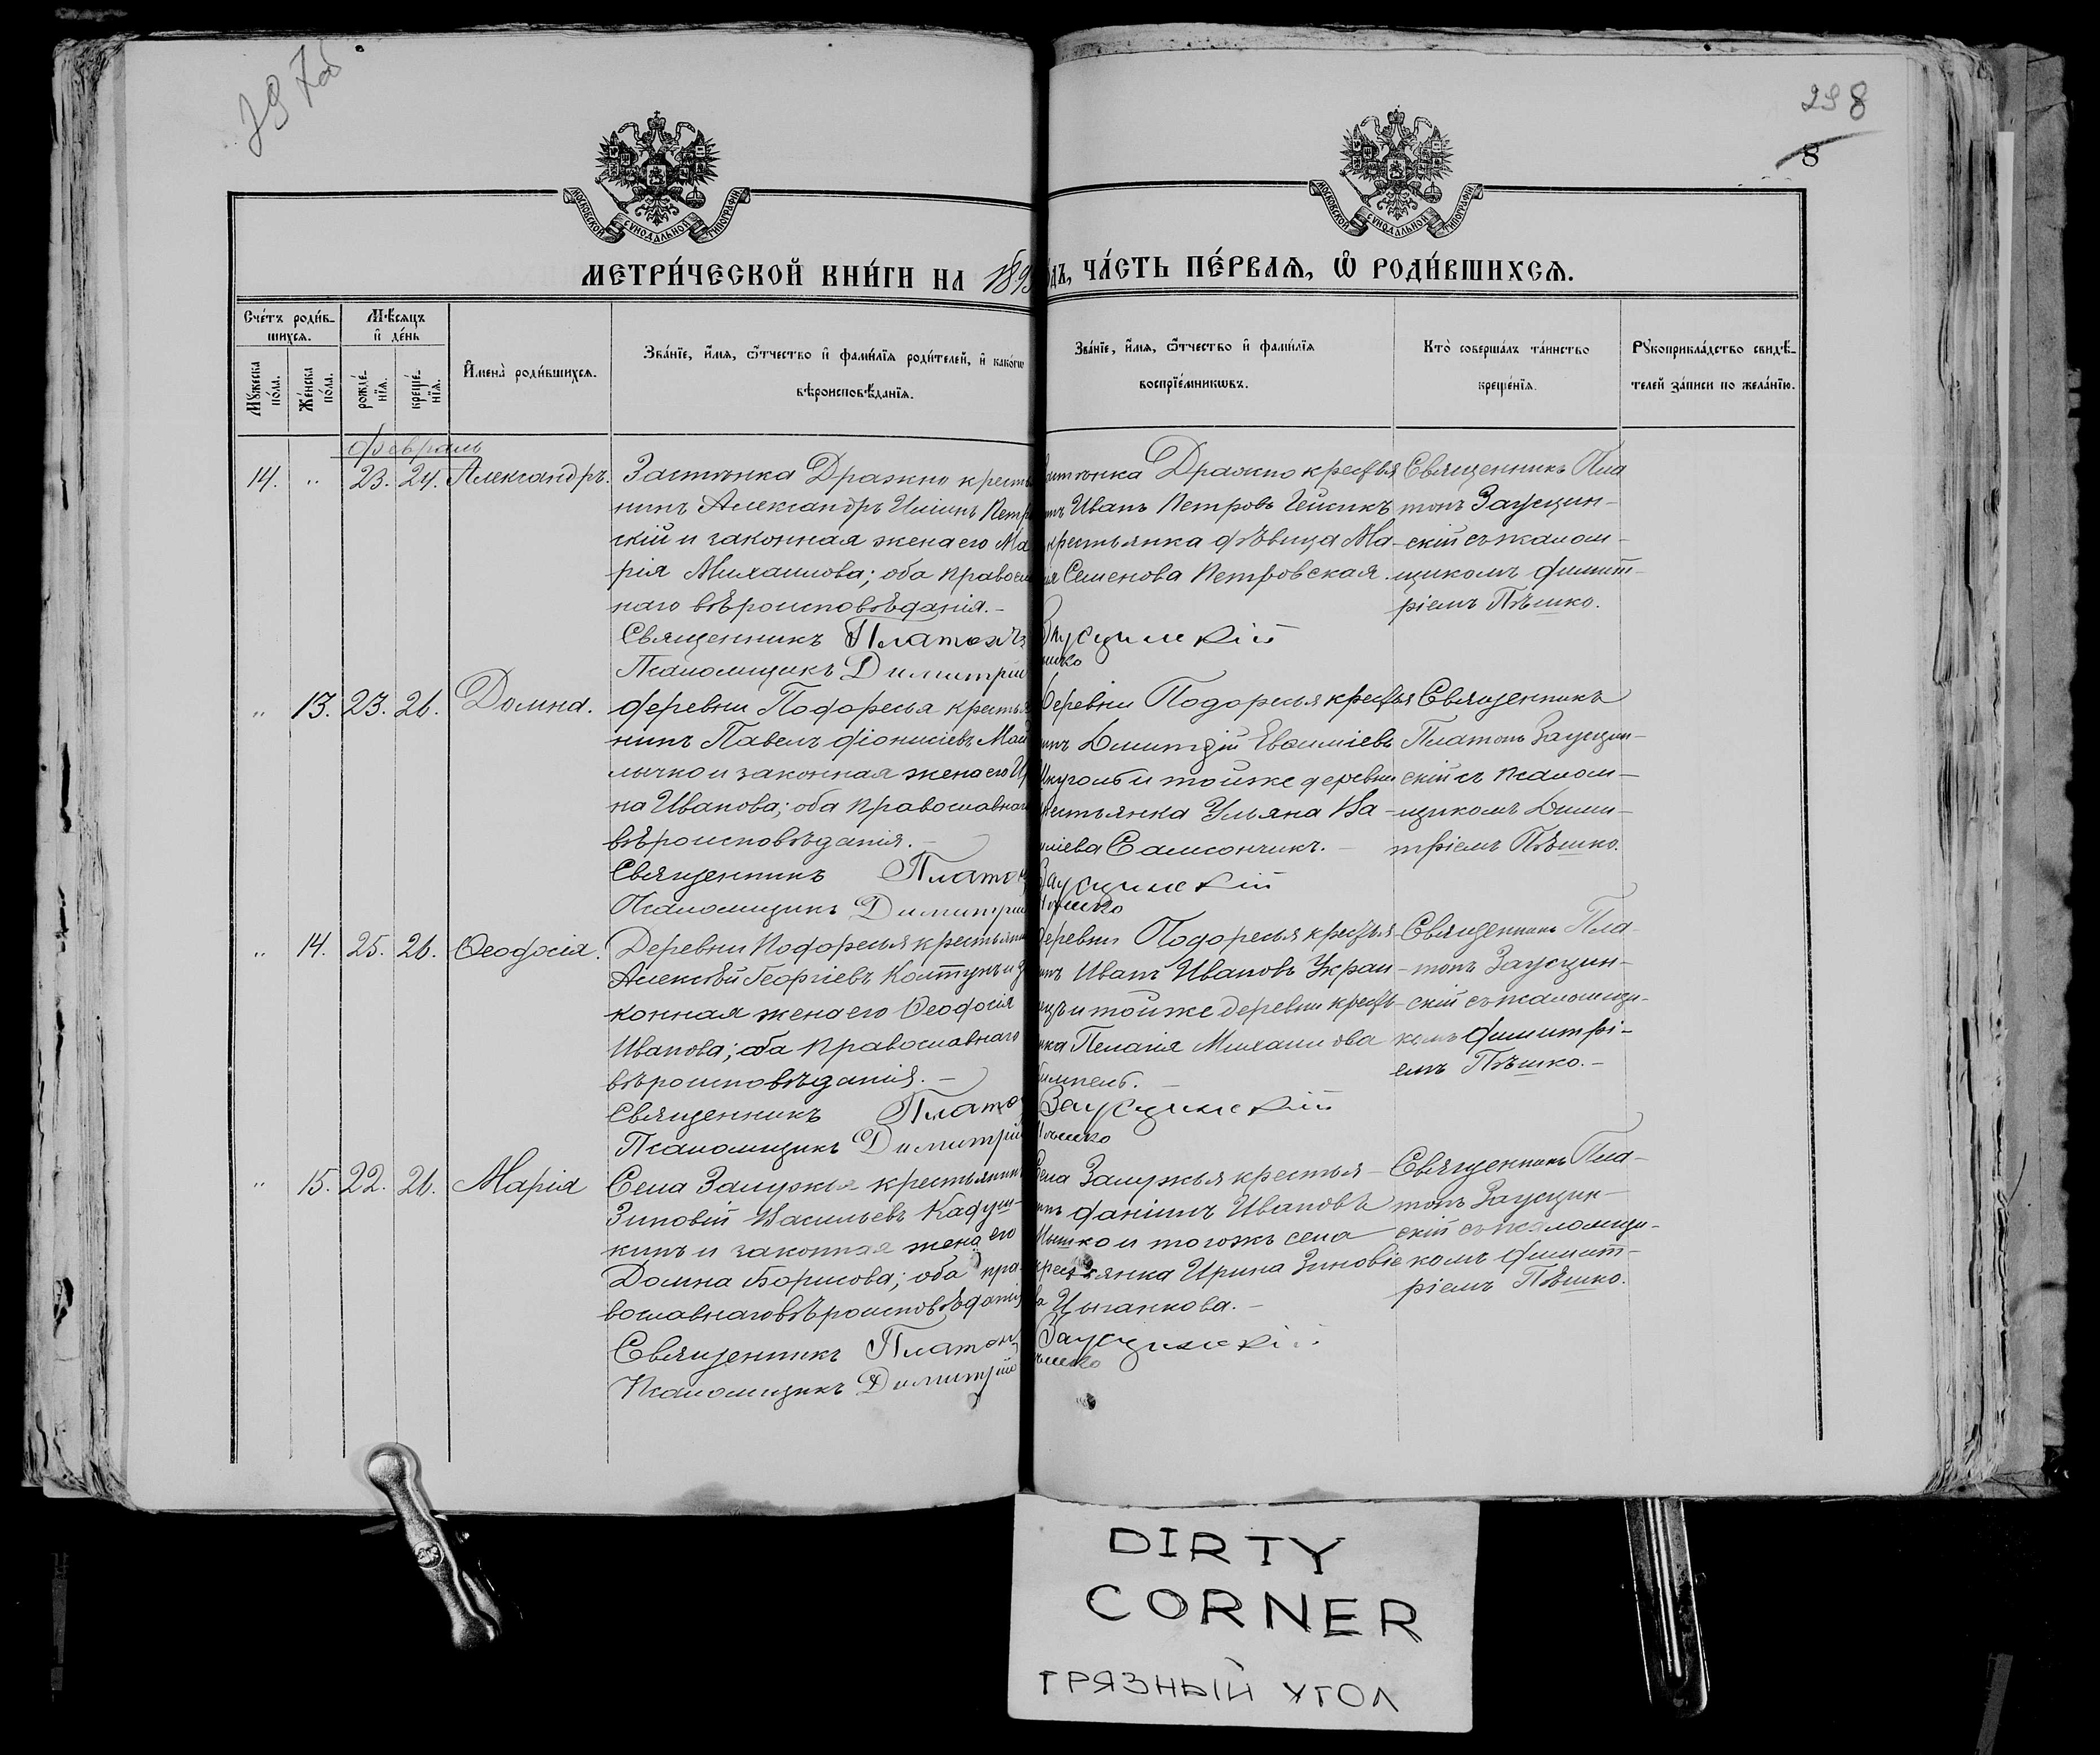 298
8
МОСКОВСКОЙ СѴНОДАЛЬНОЙ ТИПОГРАФІИ
МОСКОВСКОЙ СѴНОДАЛЬНОЙ ТИПОГРАФІИ
МЕТРИ́ЧЕСКОЙ КНИ́ГИ НА 189
дъ, ЧА́СТЬ ПЕ́РВАѦ, Ѡ҆ РОДИ́ВШИХСѦ.
Сче́тъ роди́в-
шихсѧ.
Мꙋ́жеска по́ла.
Же́нска по́ла.
Мѣ́сѧцъ
и҆ де́нь
рожде́-
нїѧ.
креще́-
нїѧ.
И҆мена̀ роди́вшихсѧ.
Зва́нїе, и҆́мѧ, ѻ҆́тчество и҆ фами́лїѧ роди́телей, и҆ како́гѡ
вѣроисповѣ́данїѧ.
Зва́нїе, и҆́мѧ, ѻ҆́тчество и҆ фами́лїѧ
воспрїе́мникѡвъ.
Кто̀ соверша́лъ та́инство
креще́нїѧ.
Рꙋкоприкла́дство свидѣ́-
телей за́писи по жела́нїю.
Февраль
14. " 23. 24. Александръ.
Застѣнка Дражно кресть
нинъ Александръ Петр
скій и законная жена его Ма
рія Михаилова; оба правосл
наго вѣроисповѣданія. -
Священникъ Платонъ
Псаломщикъ Димитрій
Дражно крестья
Иванъ Петровъ
крестьянка дѣвица Ма-
Семенова Петровская.
Священникъ Пла
тонъ Заусцин-
скій съ псалом-
щикомъ Димит-
ріемъ Пѣшко.
Заусцинскій
" 13. 23. 26. Домна.
деревни Подоресья крестья
нинъ Павелъ Діонисіевъ
и законная жена его
на Иванова; оба православнаго
вѣроисповѣданія. -
Священникъ Платон
Псаломщикъ Димитрій
деревни Подоресья крестья
Димитрій Евфиміевъ
и тойже деревни
крестьянка Ульяна Ва-
силіева Самсончикъ. -
Священникъ
Платонъ Заусцин-
скій съ псалом-
щикомъ Дими-
тріемъ Пѣшко.
Заусцинскій
Пѣшко
" 14. 25. 26. Ѳеодосія.
Деревни Подоресья крестьянинъ
Алексѣй Георгіевъ Колтунъ и за
конная жена его Ѳеодосія
Иванова; оба православнаго
вѣроисповѣданія. -
Священникъ Платон
Псаломщикъ Димитрій
деревни Подоресья крестья-
Иванъ Ивановъ Украи-
и тойже деревни кресть-
Пелагія Михаилова
Священникъ Пла-
тонъ Заусцин-
скій съ псаломщи-
комъ Димитрі-
емъ Пѣшко. -
Заусцинскій
Пѣшко
" 15. 22. 26. Марія
Села Залужья крестьянинъ
Зиновій Васильевъ Кадуш-
кинъ и законная жена его
Домна Борисова; оба пра-
вославнаго вѣроисповѣданія
Священникъ Платонъ
Псаломщикъ Димитрій
Села Залужья крестья-
Даніилъ Ивановъ
Мышко и тогожъ села
крестьянка Ирина Зиновіе
ва Цыганкова. -
Священникъ Пла-
тонъ Заусцин-
скій съ псаломщи-
комъ Димит-
ріемъ Пѣшко.
Заусцинскій
DIRTY
CORNER
ГРЯЗНЫЙ УГОЛ